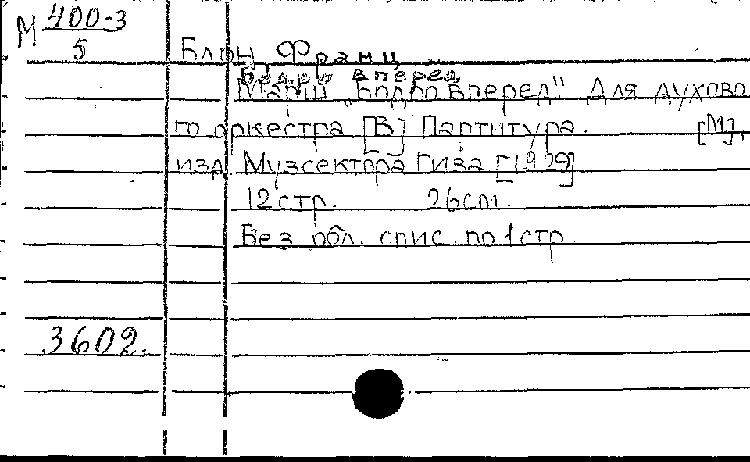 М 400-3
5
Блон, Франц
Бодро вперед
Марш „Бодро вперед" Для духово
го оркестра [В] Партитура. [М],
изд. Музсектора Гиза [1929]
12 стр. 26 см.
Без обл. спис. по 1 стр.
3602.